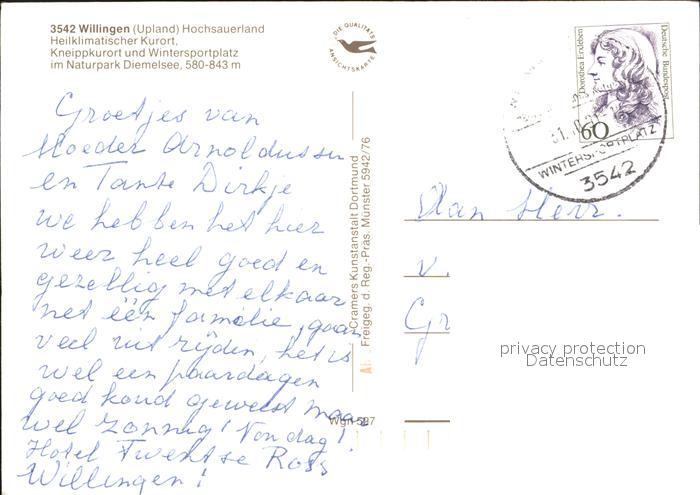 3542 Willingen (Upland) Hochsauerland
Heilklimatischer Kurort,
Kneippkurort und Wintersportplatz
im Naturpark Diemelsee, 580-843 m
DIE QUALITÄTS
ANSICHTSKARTE
Dorothea Erxleben
Deutsche Bundespost
60
WINTERSPORTPLATZ
3542
Groetjes van
Moeder Arnoldussen
en Tante Dirkje
we hebben het hier
weer heel goed en
gezellig met elkaar
net één familie, gaan
veel uit rijden, het is
wel een paar dagen
goed koud geweest maar
wel zonnig! Vandaag!
Hotel Twentse Ross
Willingen!
Cramers Kunstanstalt Dortmund
Freigeg. d. Reg.-Präs. Münster 5942/76
Wgn 597
Aan Herr.
v.
Gr
privacy protection
Datenschutz